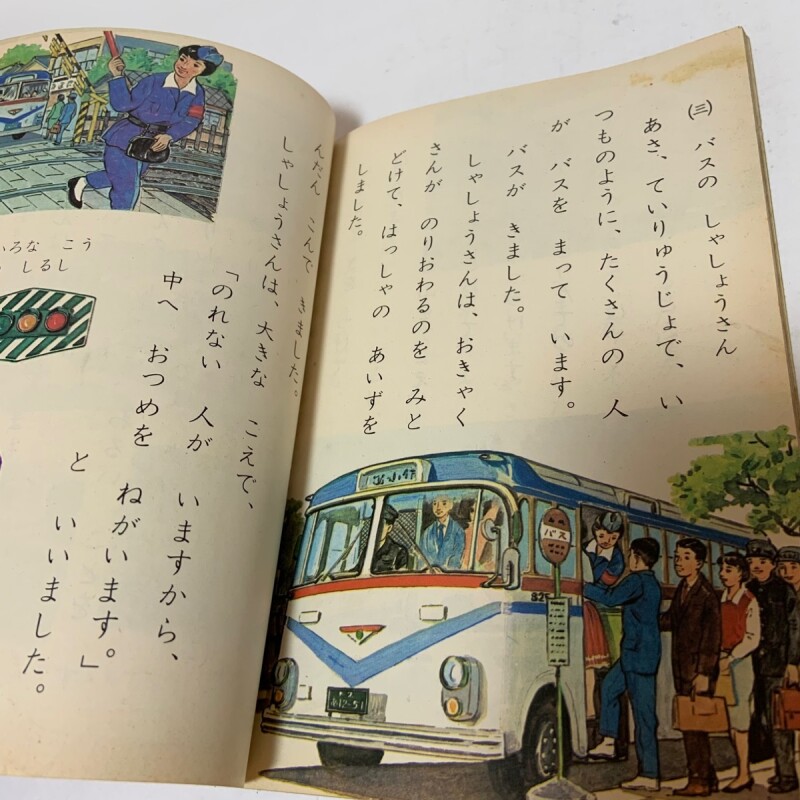 (三) バスの しゃしょうさん
あさ、ていりゅうじょで、い
つものように、たくさんの 人
が バスを まって います。
バスが きました。
しゃしょうさんは、おきゃく
さんが のりおわるのを みと
どけて、はっしゃの あいずを
しました。
バス
んだん こんで きました。
しゃしょうさんは、大きな こえで、
「のれない 人が いますから、
中へ おつめを ねがいます。」
と いいました。
いろな こう
しるし